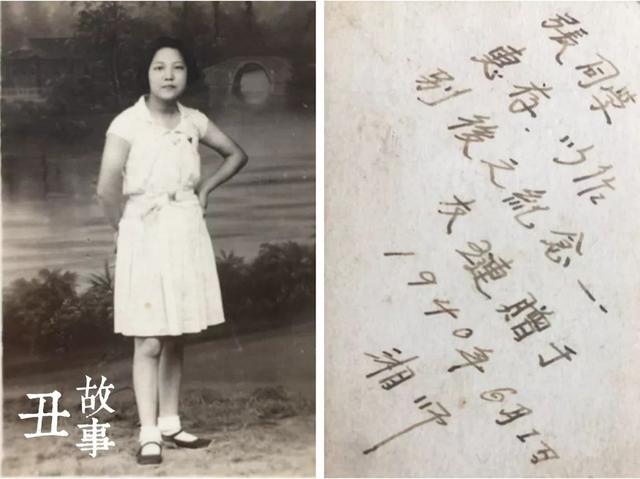 張同學
惠存.以作
別後之紀念——
友璉贈于
1940年6月1日
湘师
丑
故事